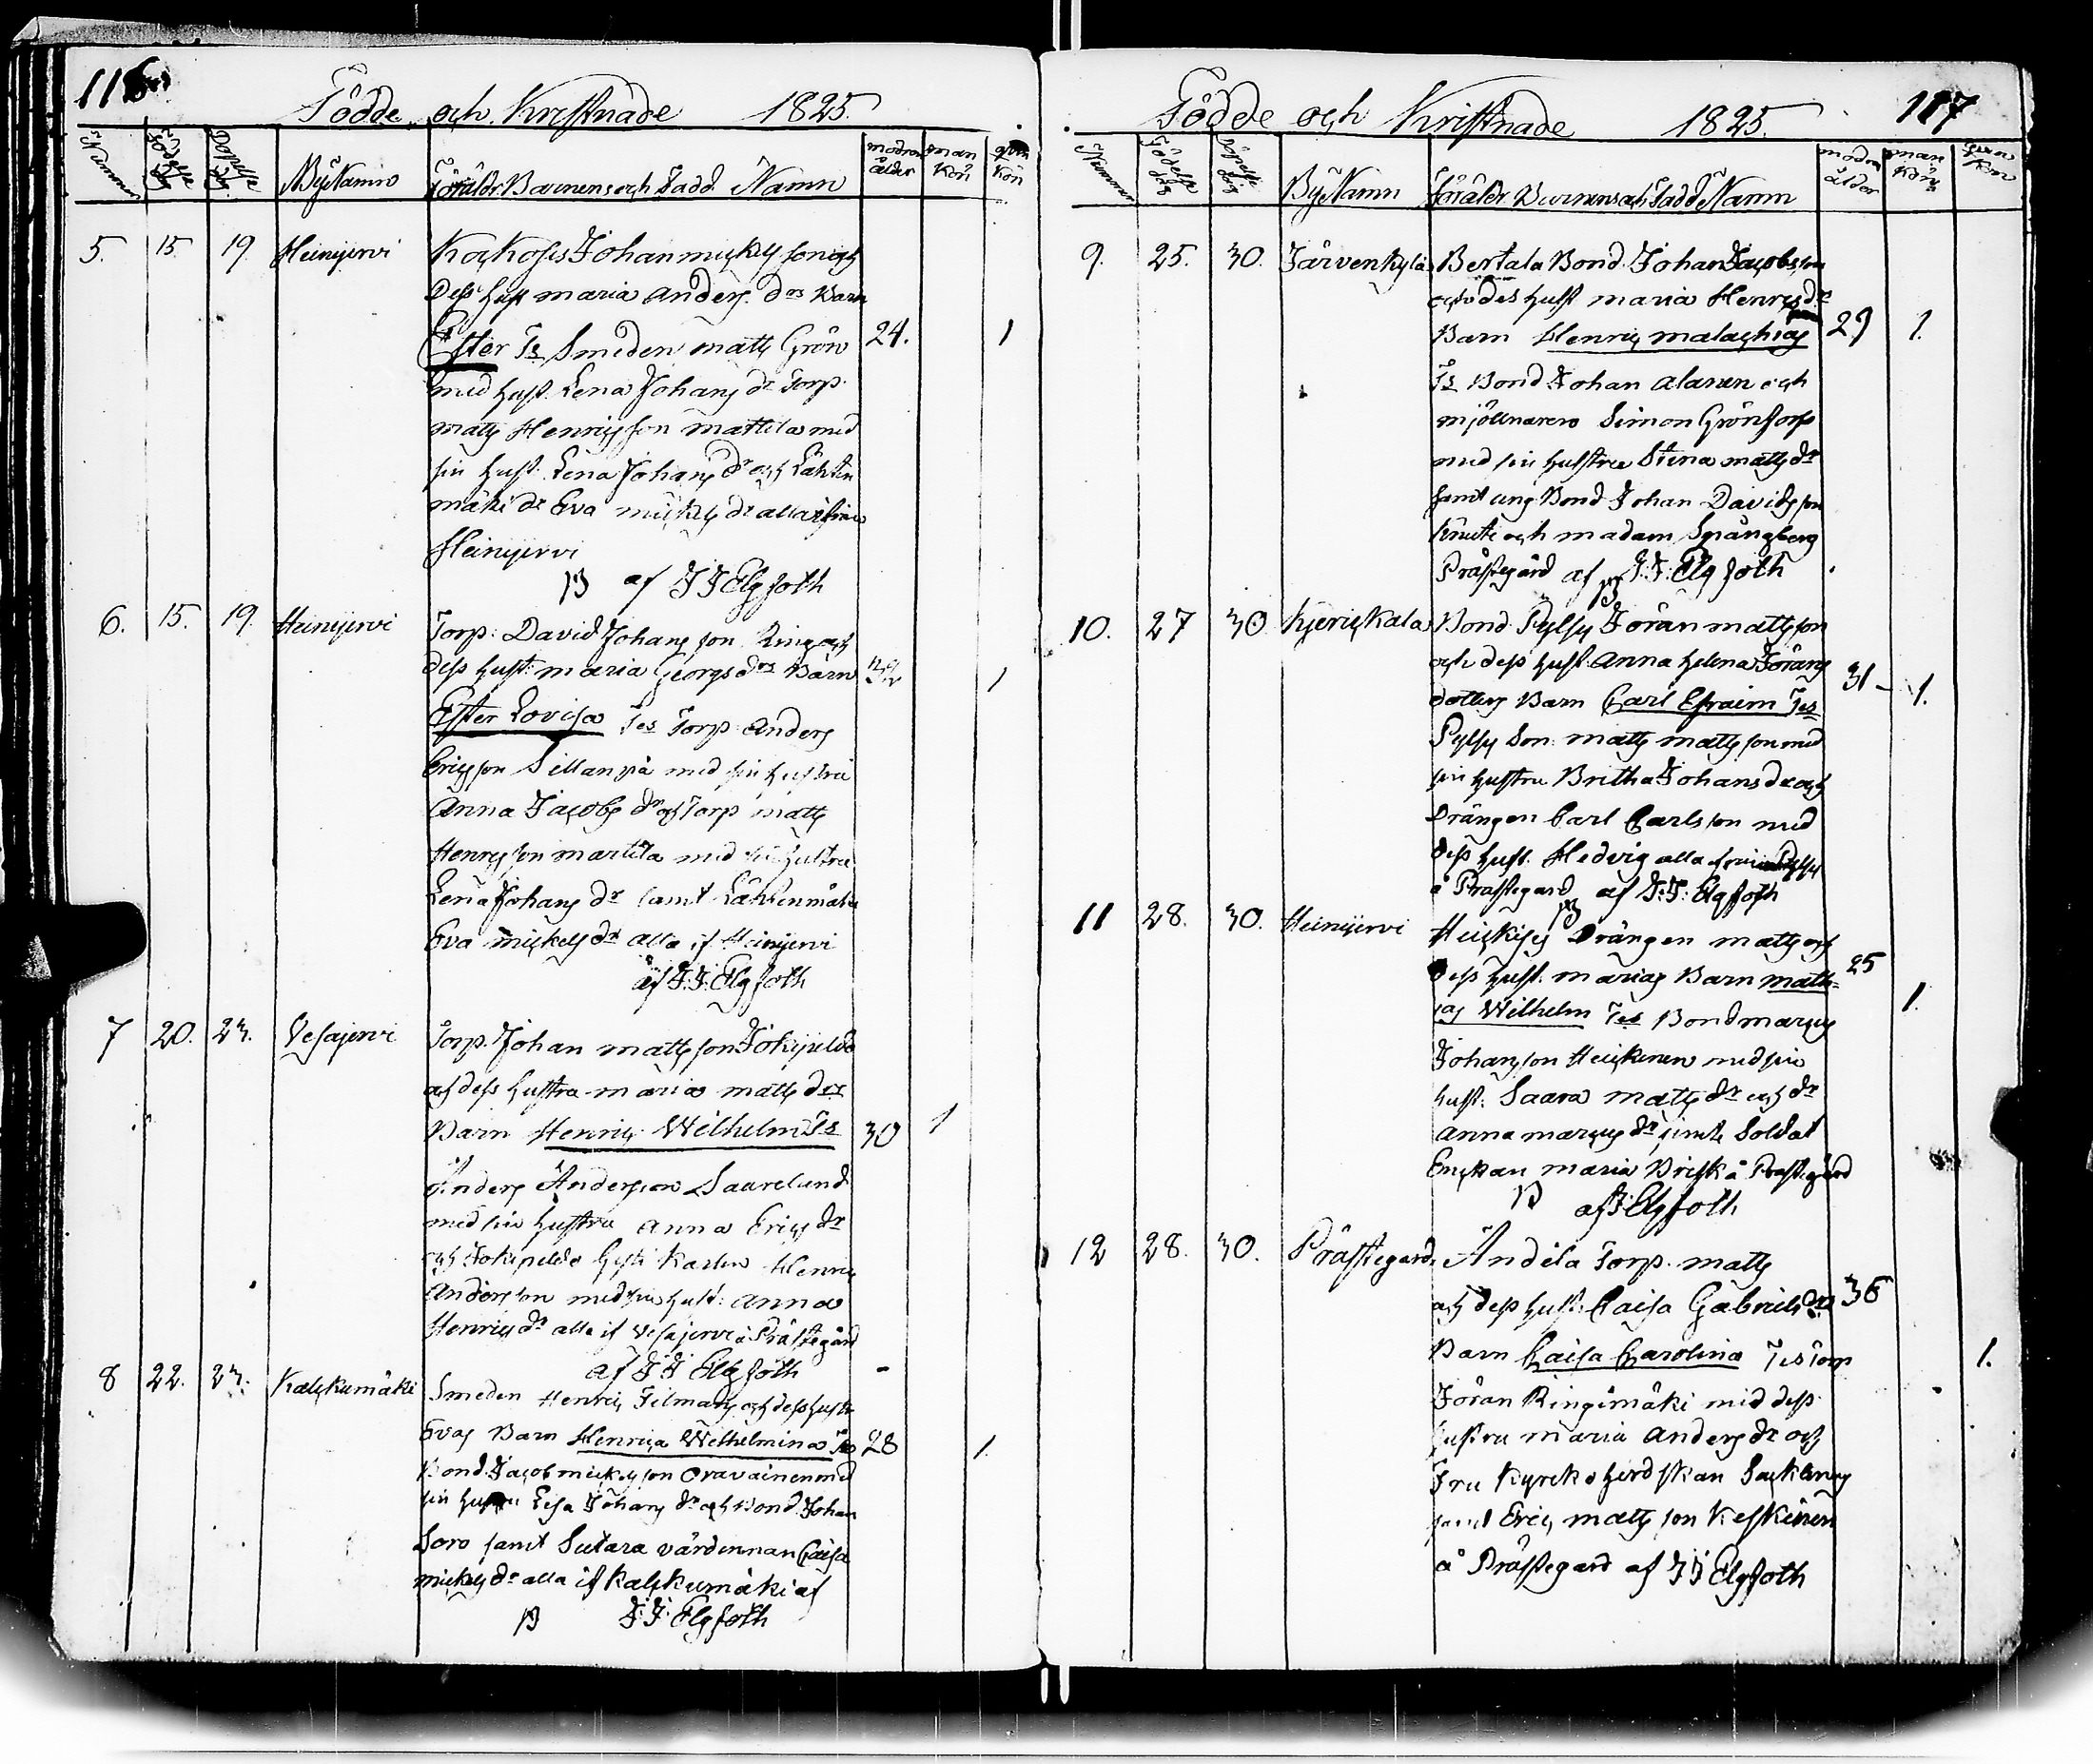 116
Födde och Kristnade 1825.
Nummer Födelse dag Döpelse dag By Namn Föräldr. Barnens och Fadd. Namn modrens ålder man kön qvin kön
5. 15. 19. Heinijervi Kockosis Johan mickelsson och
Dess hust maria Anders. drs Barn
Ester Ts Smeden matts Grön 24. 1
med hust. Lena Johans dr Torp.
matts Henricsson mattila med
sin hust. Lena Johans dr och Lähten
mäki dr Eva mickels dr alla ifrån
Heinijervi
af J J Elgfoth
6. 15. 19. Heinijervi Torp: David Johansson Ring och
dess hust: maria Georgs drs Barn 32 1
Ester Lovisa Tes Torp Anders
Ericsson Sillanpä med sin hustru
Anna Jacobs dr och Torp matts
Henrcsson martila med sin hustru
Lena Johans dr samt Lähtenmäki
Eva mickels dr alla if Heinijervi
af J: J: Elgfoth
7 20. 23. Vesajervi Torp. Johan mattsson Jokipeldo
och dess hustru maria matts drs
Barn Henric Wilhelm Ts 30 1
Anders Andersson Saarelund
med sin hustru Anna Erics dr
och Jokipeldo Henric
Andersson med sin hust: Anna
Henrics dr alla if Vesajervi å Prästegård
af J J Elgfoth
8 22. 23. Kalckumäki Smeden Henric Filmans och dess hustr
Evas Barn Henrica Wilhelmina Ts 28 1.
Bond. Jacob mickelsson Oravainen med
sin hustru Lisa Johans dr och Bond. Johan
Soro samt Sutara värdinnan Caisa
mickels dr alla if Kalckumäki af
J: J: Elgfoth
117
Födde och Kristnade 1825.
Nummer Födelse dag Döpelse dag By Namn Föräldr. Barnens och Fadd Namn modrs ålder man kön qvin kön
9. 25. 30. Järvenkylä Bertala Bond. Johan Jacobsson
och des hust maria Henrcs dr
Barn Henric malachias 29 1.
Ts Bond Johan Alanen och
mjölnaren Simon Grönfors
med sin hustru Stina matts dr
samt ung Bond Johan Davidsson
Knuti och madam Spångberg
Prästegård af J: J: Elgfoth
10. 27 30 Kjerickala Bond Pylsy Jöran mattsson
och dess hust. Anna Helena Jörans
dotters Barn Carl Efraim Tes 31 1.
Pylsy Son matts mattsson med
sin hustru Britha Johans dr och
Drängen Carl Carlsson med
dess hust. Hedvig alla från Pylsy
å Prästegard af J: J: Elgfoth
11 28. 30. Heinijervi Heickisis Drängen matts och
dess hust. marias Barn math= 25
ias Wilhelm Tes Bond marcus 1.
Johansson Heickinen med sin
hust. Saara matts dr och dr
Anna marcus dr Soldat
Enckan maria Brisk å Prästegård
af J: Elgfoth
12 28. 30. Prästegard. Andila Torp. matts
och dess hust: Caisa Gabriels drs 36
Barn Caisa Carolina Tes Torp 1.
Jöran Ringimäki med dess
hustru maria Anders dr och
Fru
samt Eric mattsson Keskinen
å Prästegard af J J Elgfoth